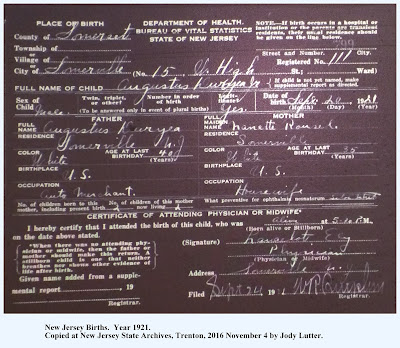 PLACE OF BIRTH
County of Somerset
Township of
or
Village of
or
City of Somerville
DEPARTMENT OF HEALTH.
BUREAU OF VITAL STATISTICS
STATE OF NEW JERSEY
NOTE—If birth occurs in a hospital or institution or the parents are transient residents, their usual residence should be given on the line below.
Street and Number. City.
Registered No. 111
No. 15 W. High St.; Ward)
FULL NAME OF CHILD Augustus Duryea
If child is not yet named, make supplemental report as directed.
Sex of Child: Male
Twin, triplet, or other?
Number in order of birth
(To be answered only in event of plural births)
Legitimate? Yes
Date of birth Sept. 20 1921
(Month) (Day) (Year)
FATHER
FULL NAME Augustus Duryea
RESIDENCE Somerville N.J.
COLOR White
AGE AT LAST BIRTHDAY
(Years)
BIRTHPLACE U.S.
OCCUPATION Merchant
No. of children born to this mother, including present birth
now living
MOTHER
FULL MAIDEN NAME Nanette
RESIDENCE Somerville
COLOR White
AGE AT LAST BIRTHDAY 35
(Years)
BIRTHPLACE U.S.
OCCUPATION Housewife
What preventive for ophthalmia neonatorum
CERTIFICATE OF ATTENDING PHYSICIAN OR MIDWIFE*
I hereby certify that I attended the birth of this child, who was Alive at P.M.,
(Born alive or Stillborn)
on the date above stated.
*When there was no attending physician or midwife, then the father or mother should make this return. A stillborn child is one that neither breathes nor shows other evidence of life after birth.
(Signature) Ely
Physician
(Physician or Midwife)
Address Somerville N.J.
Given name added from a supplemental report 19
Registrar.
Filed Sept 24 1921
Registrar.
New Jersey Births. Year 1921.
Copied at New Jersey State Archives, Trenton, 2016 November 4 by Jody Lutter.